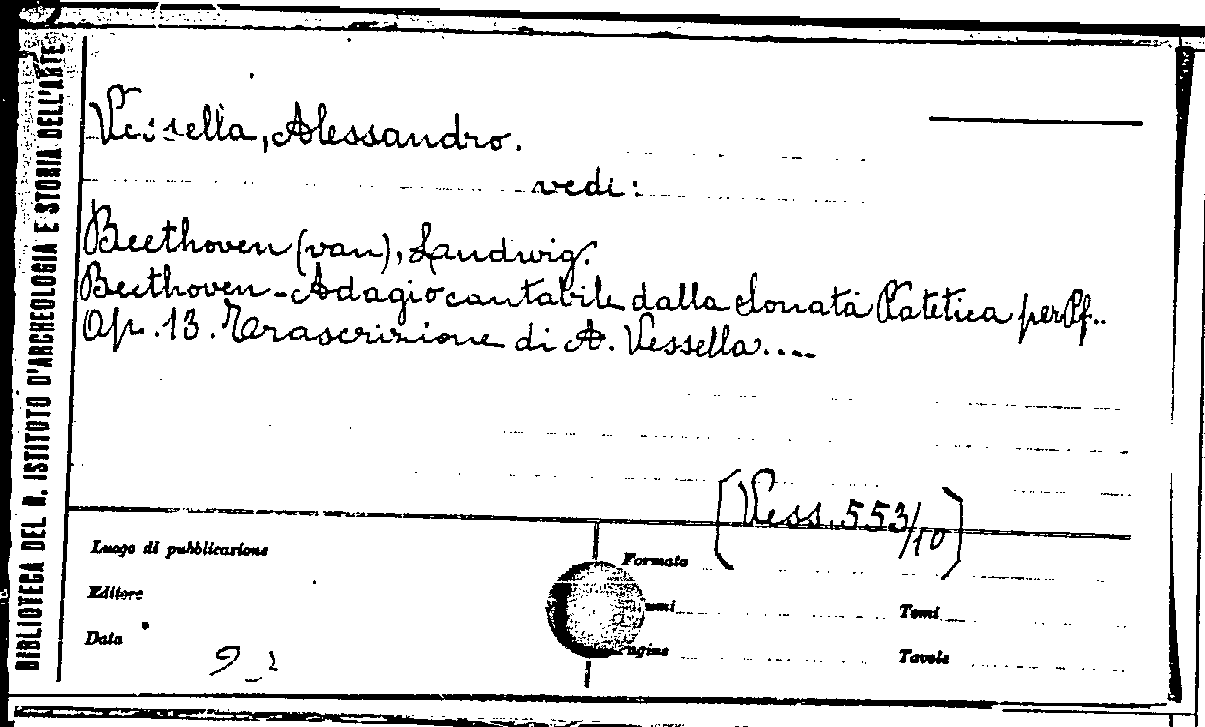 BIBLIOTECA DEL R. ISTITUTO D'ARCHEOLOGIA E STORIA DELL'ARTE
Vessella, Alessandro.
vedi:
Beethoven (van), Landwig.
Beethoven - Adagio cantabile dalla Sonata Patetica per Pf..
Op. 13. Trascrizione di A. Vessella....
(Vess. 553/10)
Luogo di pubblicazione
Formato
Editore
Tomi
Data
Tavole